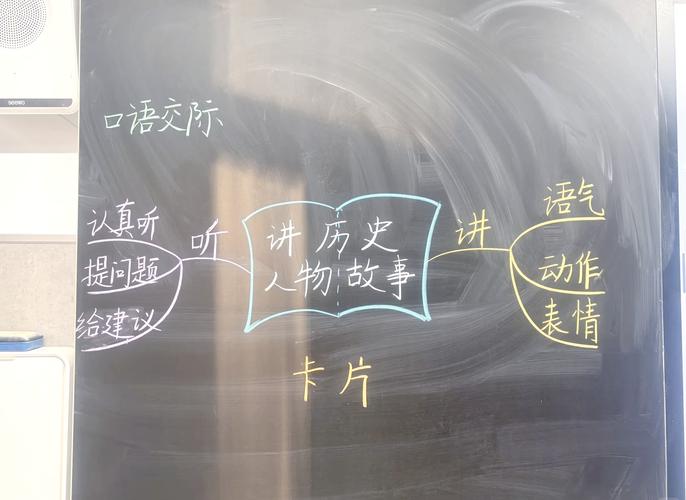 seewo
口语交际
认真听
提问题
给建议
听
讲历史
人物故事
讲
语气
动作
表情
卡片